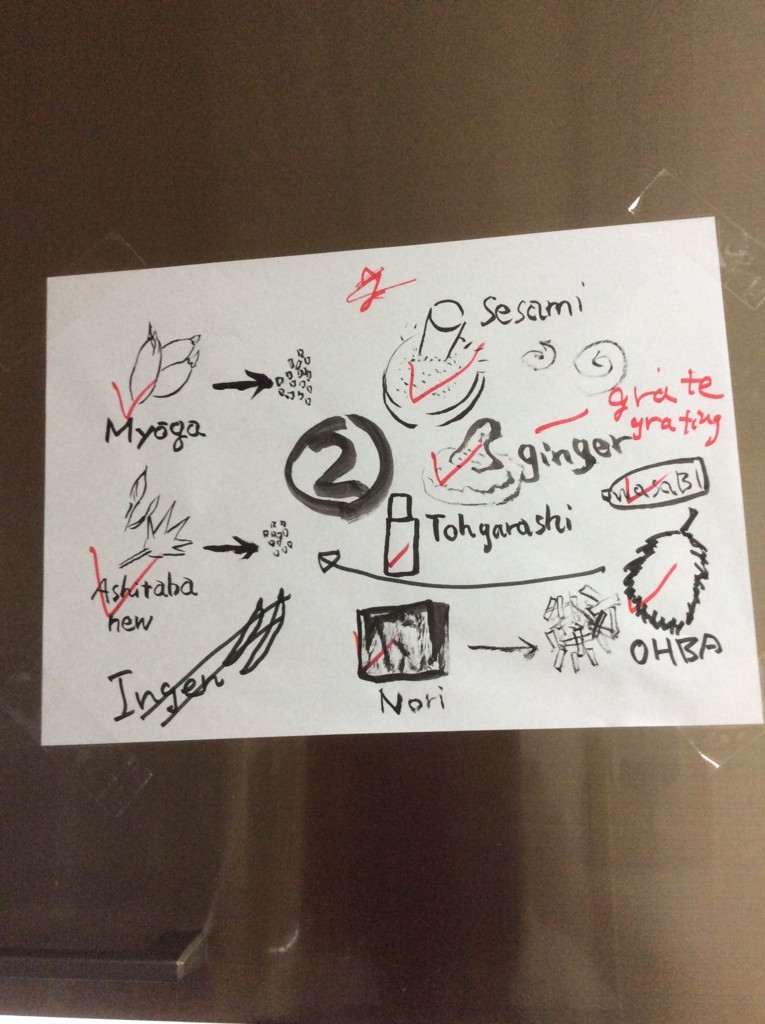 Sesami
Myoga
2
grate
grating
ginger
wasaBI
Tohgarashi
Ashitaba
new
OHBA
Ingen
Nori